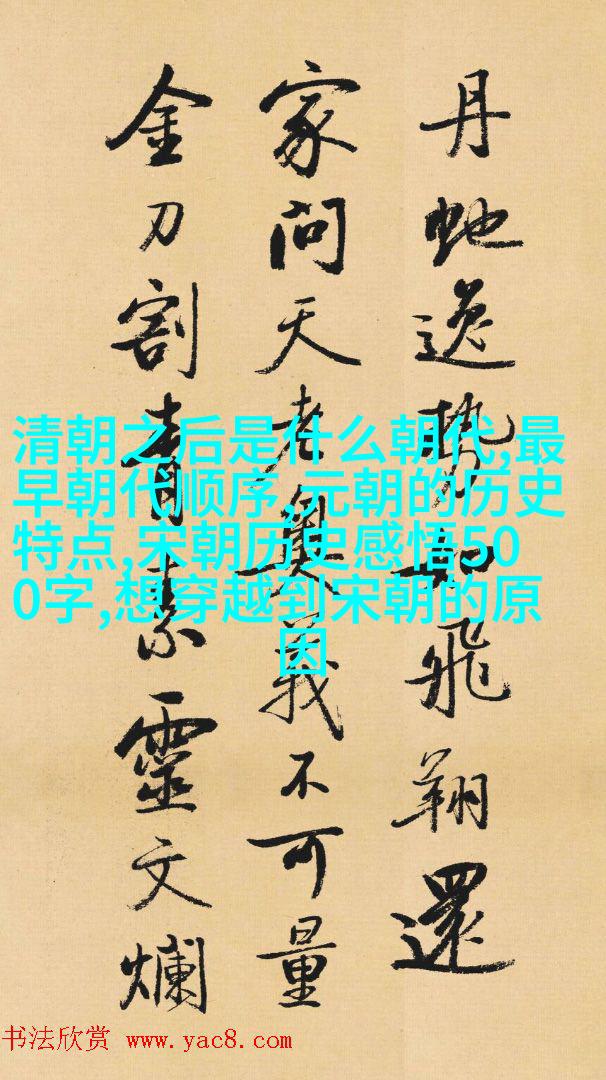 丹虵逸勢如飛翔還
家問天老奧義不可量
金刀割青素靈文爛
清朝之后是什么朝代,最
早朝代顺序,元朝的历史
特点,宋朝历史感悟50
0字,想穿越到宋朝的原
因
书法欣赏 www.yac8.com